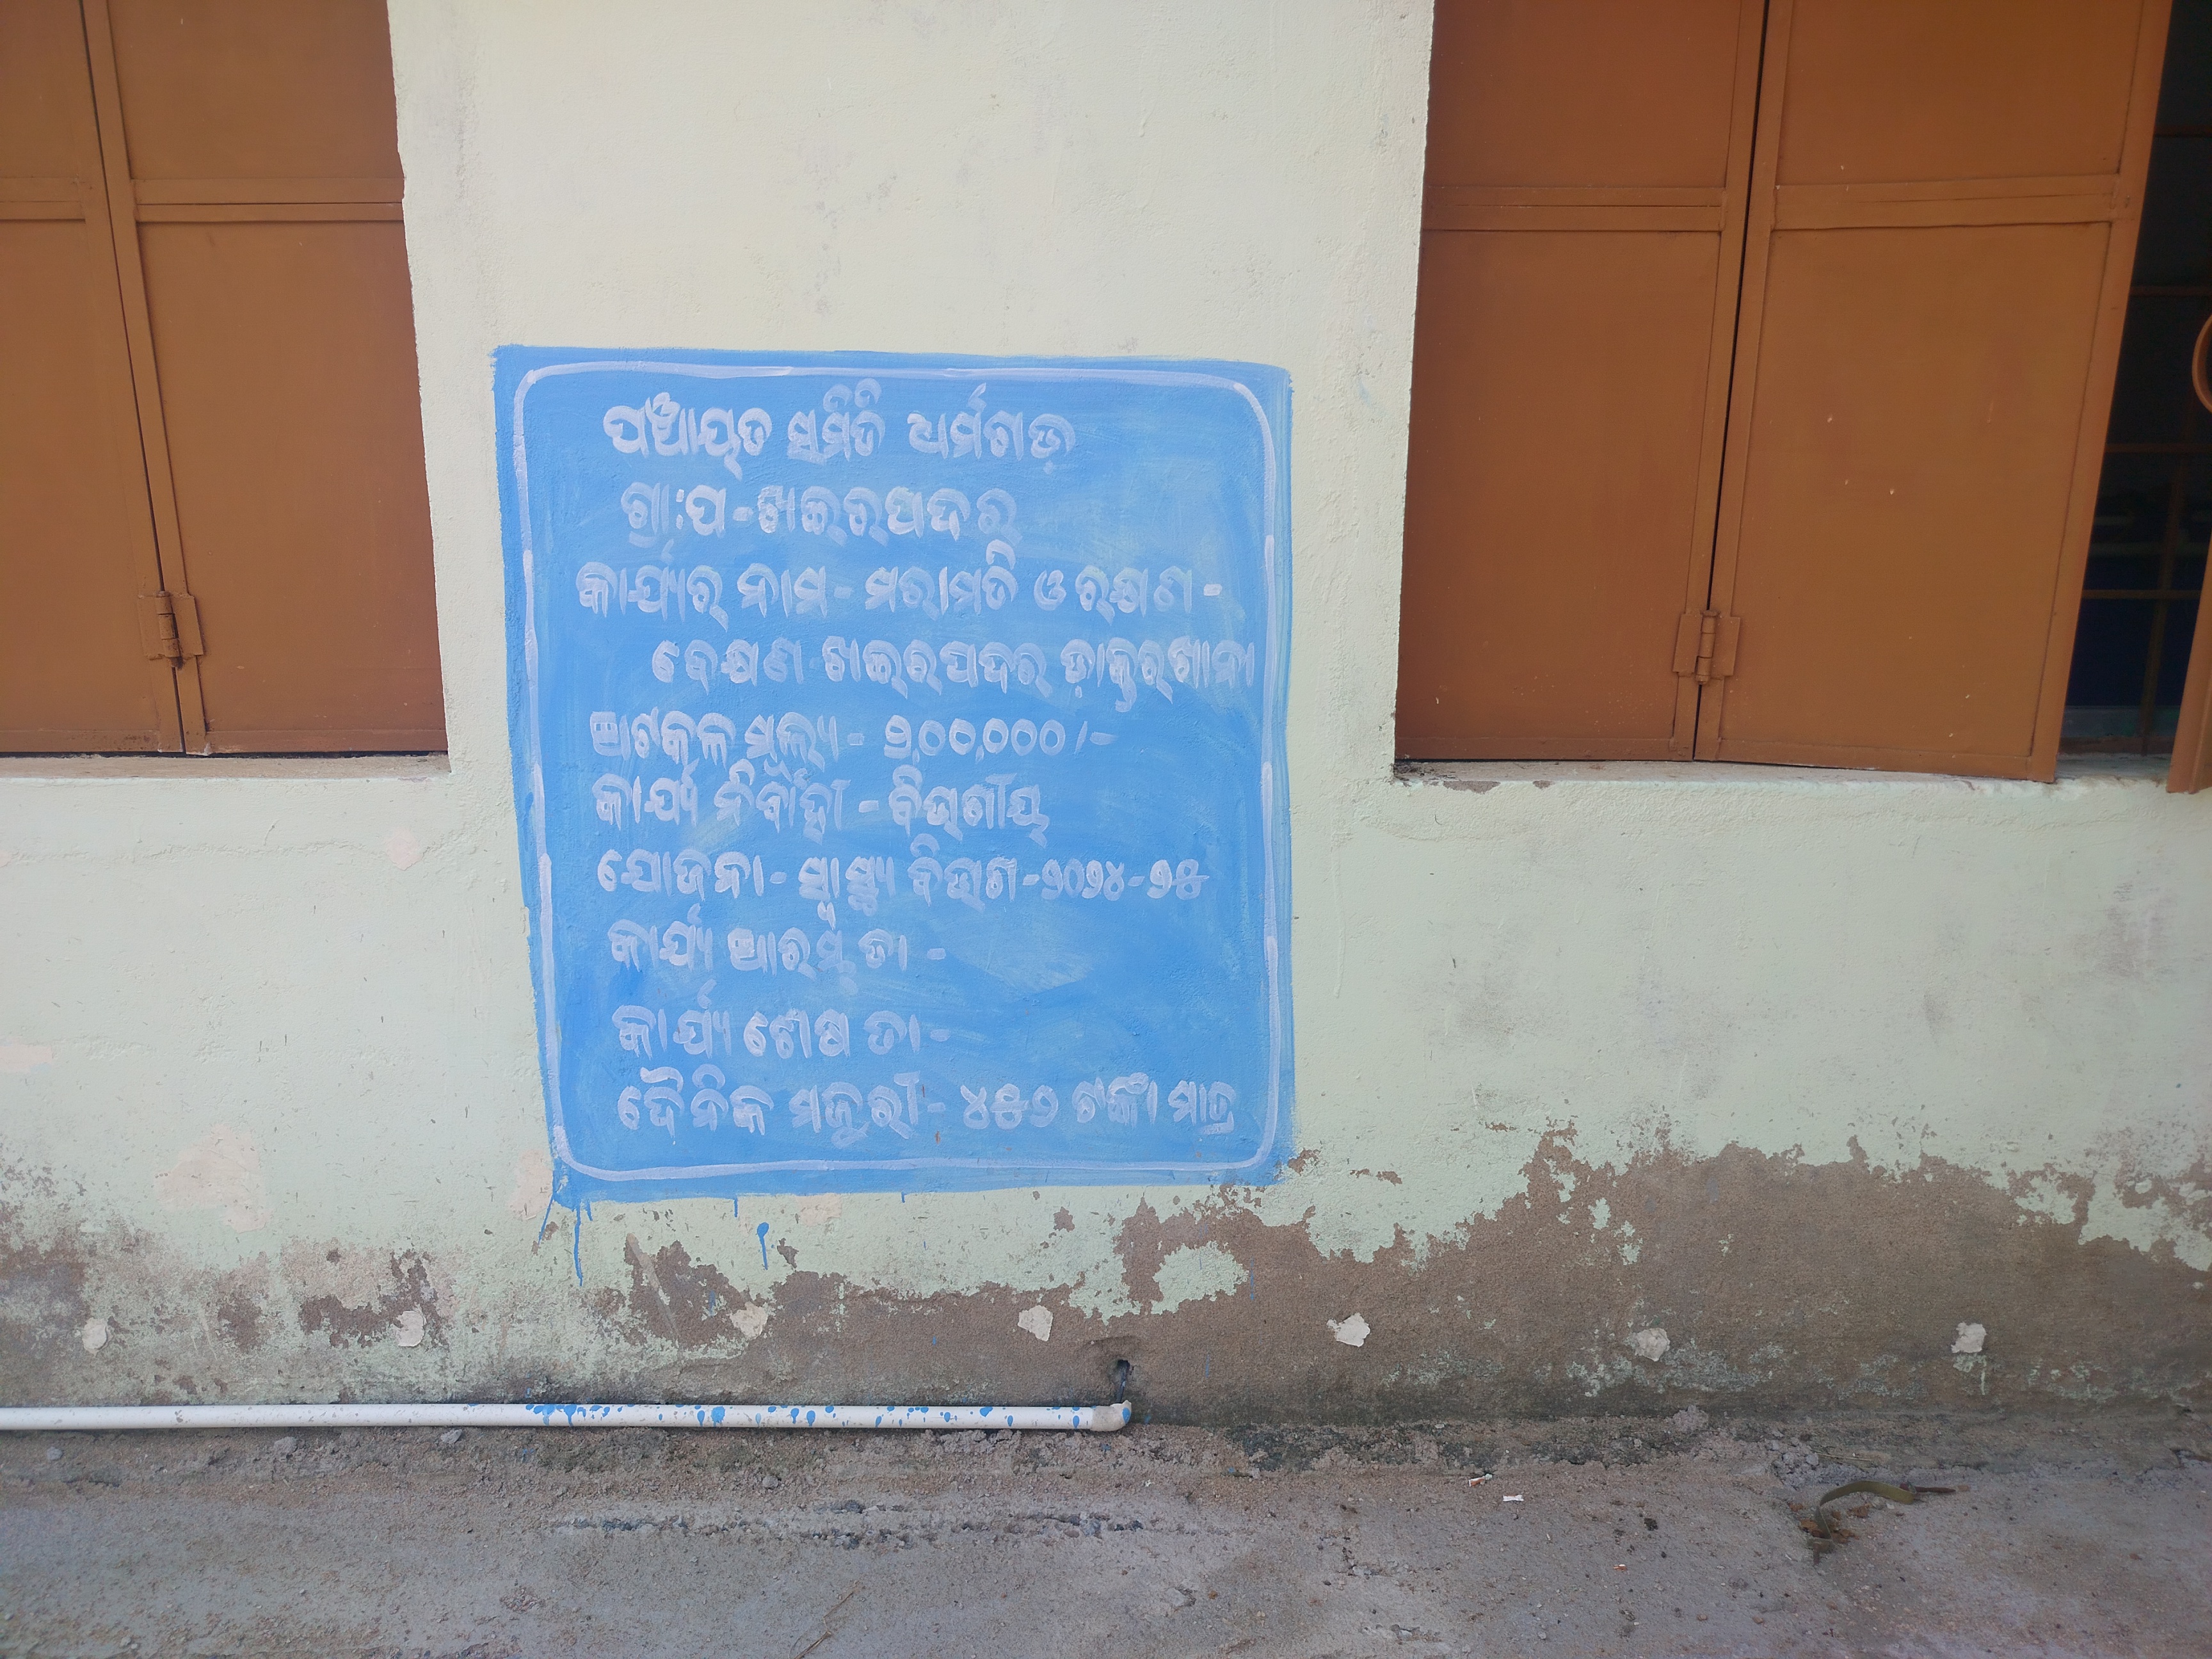 ପଞ୍ଚାୟତ ସମିତି ଧର୍ମଗଡ଼
ଗ୍ରା:ପ - ଖଇରପଦର
କାର୍ଯ୍ୟର ନାମ - ମରାମତି ଓ ରକ୍ଷଣ -
ବେକ୍ଷଣ ଖଇରପଦର ଡ଼ାକ୍ତରଖାନା
ଅଟକଳ ମୂଲ୍ୟ - ୨,୦୦,୦୦୦/-
କାର୍ଯ୍ୟ ନିର୍ବାହୀ - ବିଭାଗୀୟ
ଯୋଜନା - ସ୍ୱାସ୍ଥ୍ୟ ବିଭାଗ - ୨୦୨୪-୨୫
କାର୍ଯ୍ୟ ଆରମ୍ଭ ତା -
କାର୍ଯ୍ୟ ଶେଷ ତା -
ଦୈନିକ ମଜୁରୀ - ୪୫୨ ଟଙ୍କା ମାତ୍ର